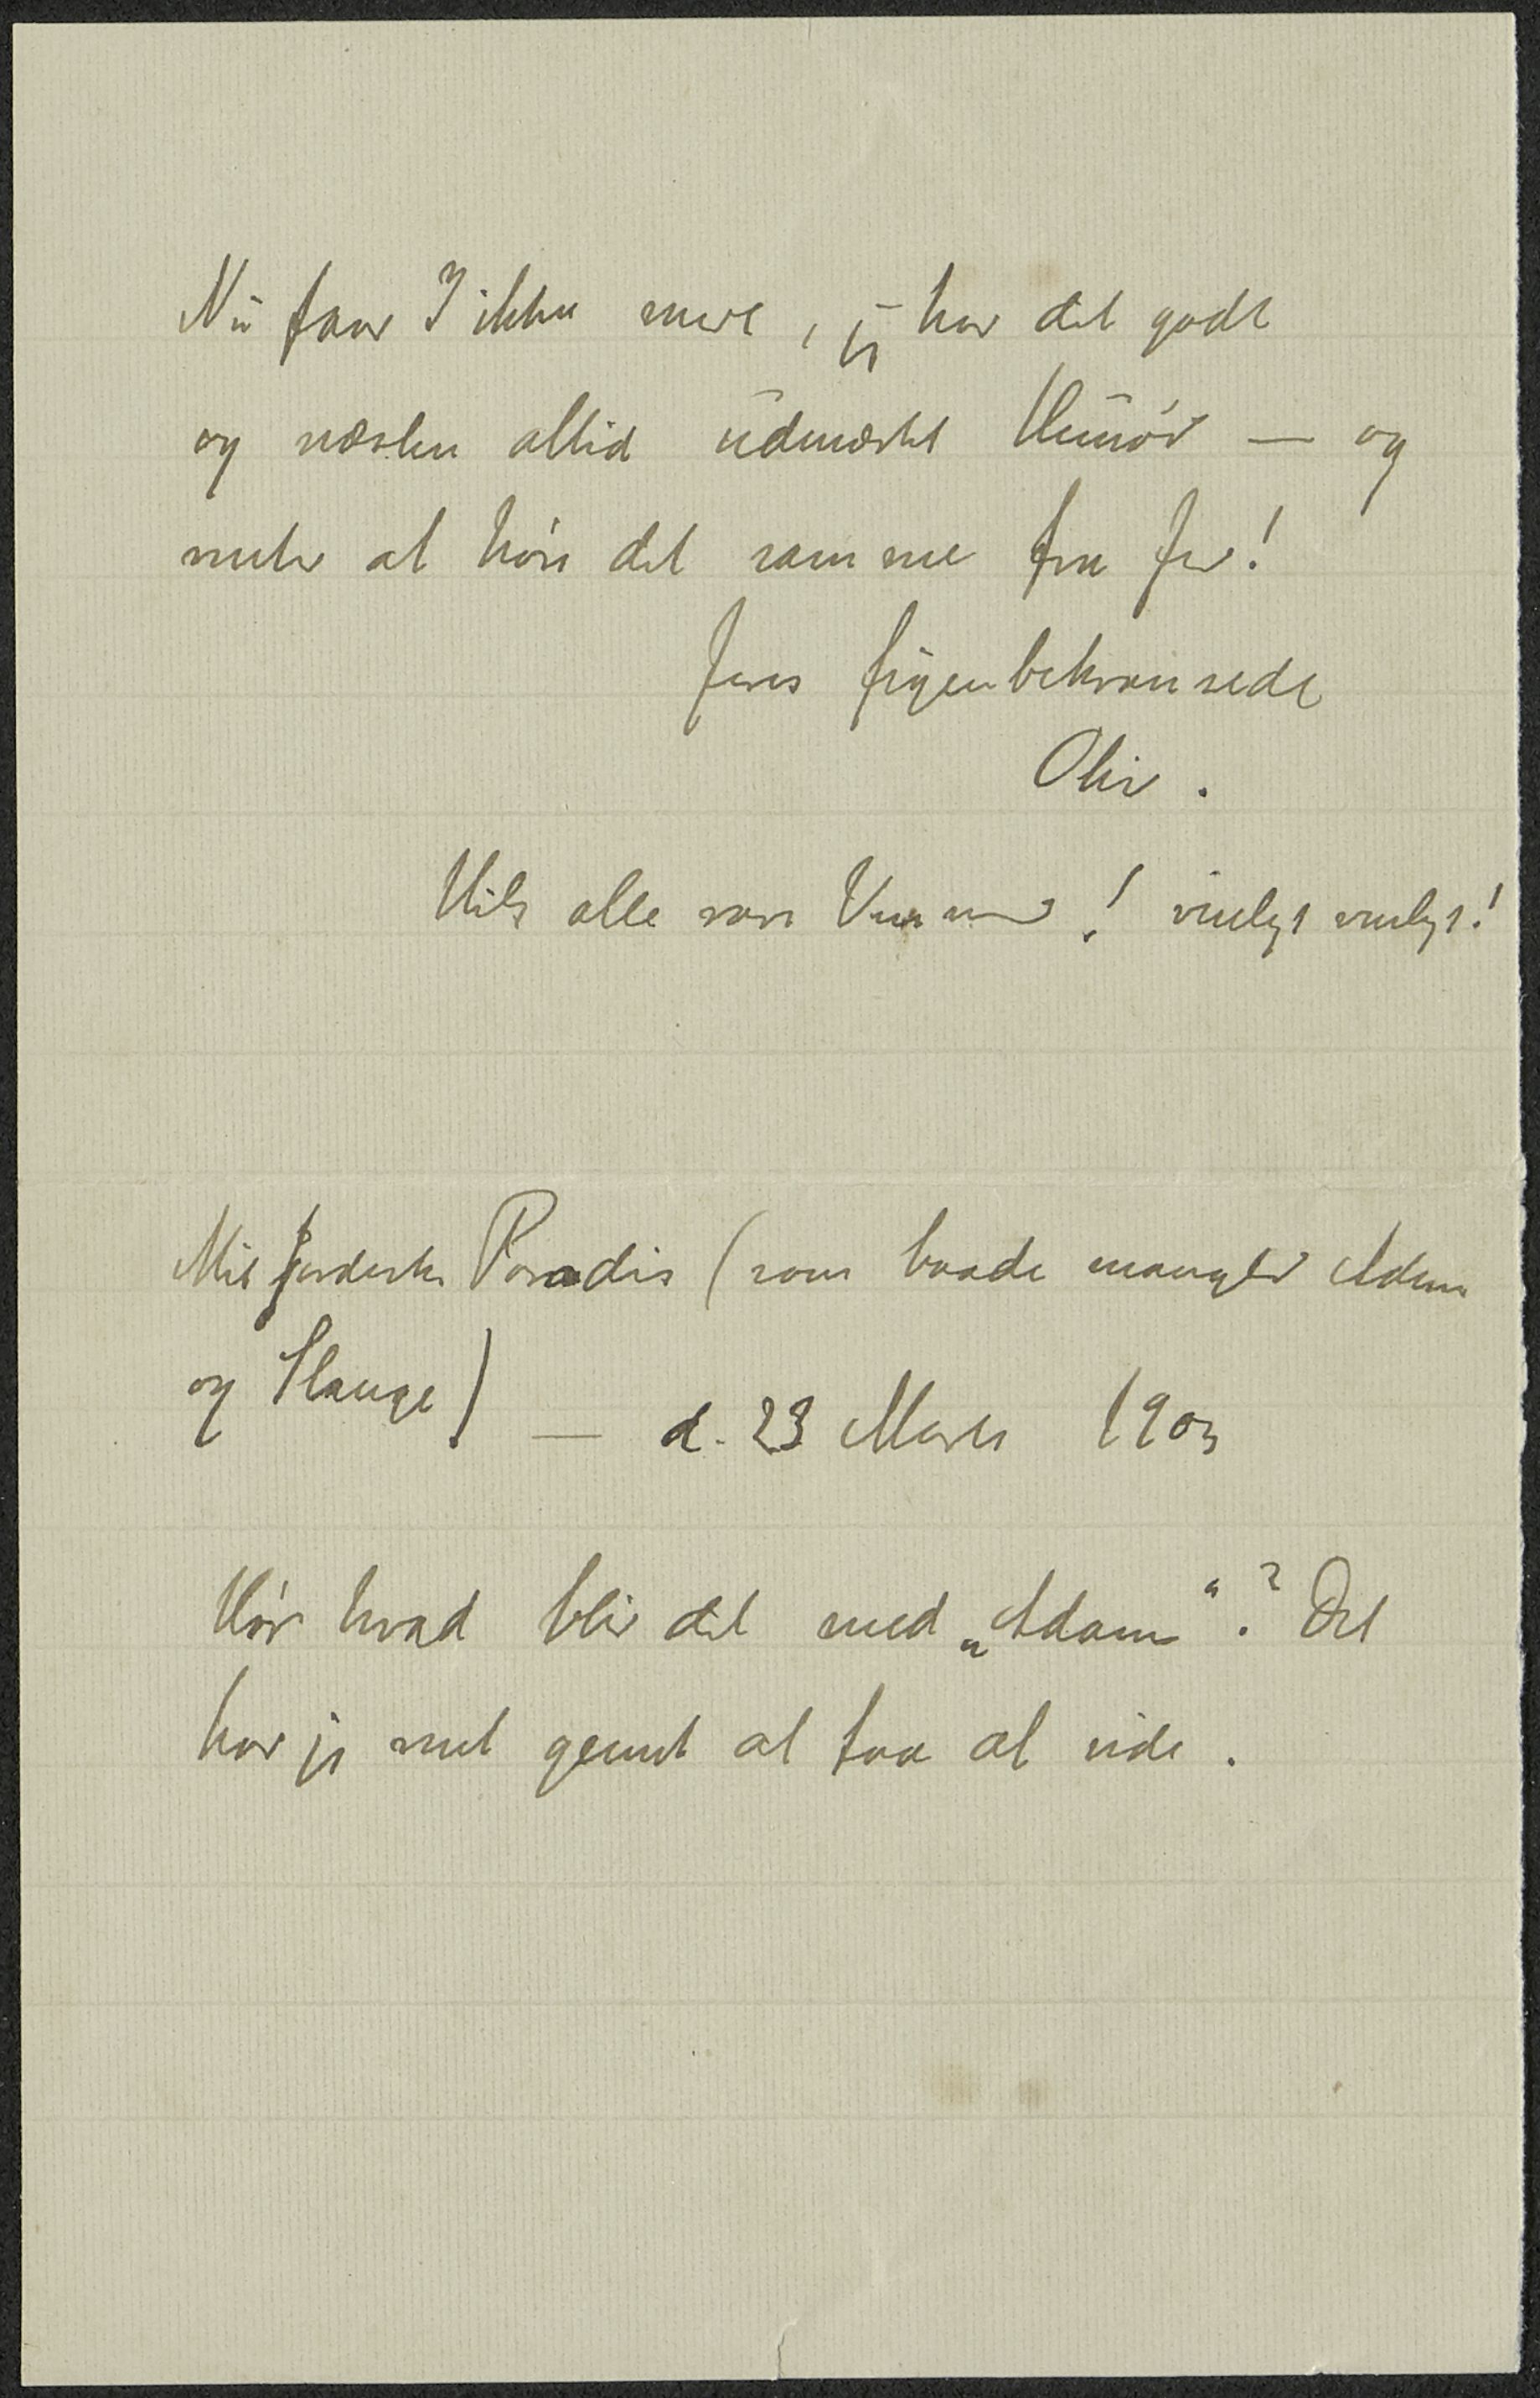 Nu faar I ikke mere, jeg har det godt
og næsten altid udmærket Humør — og
venter at høre det samme fra Jer!
Jeres figenbekransede
Oliv.
Hils alle vore Venner! venligst venligst!
Mit jordiske Paradis (som baade mangler Adam
og Slange) — d. 23 Marts 1903
Hør hvad blir det med „Adam“? Det
har jeg net at faa at vide.